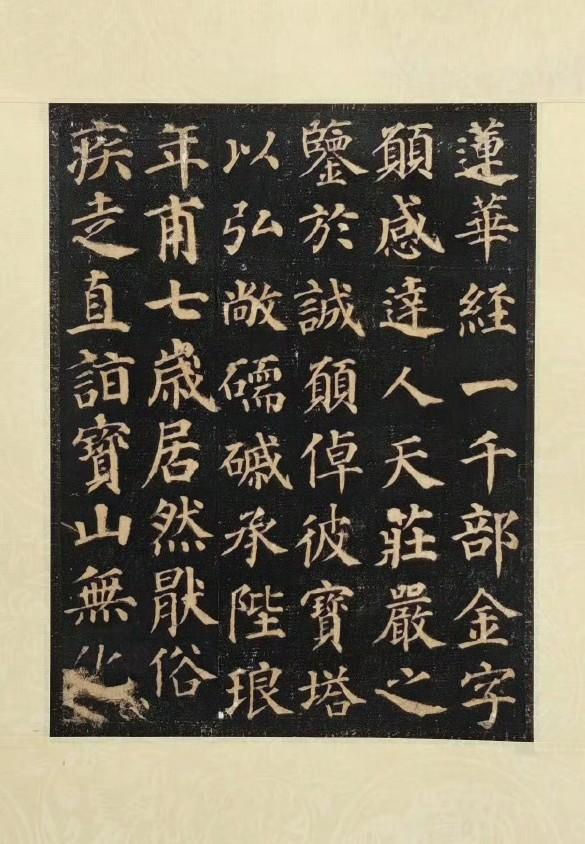 蓮華經一千部金字
願感達人天莊嚴之
鑒於誠願倬彼寶塔
以弘敞礝磩承陛琅
年甫七歲居然猒俗
疾走直詣寶山無